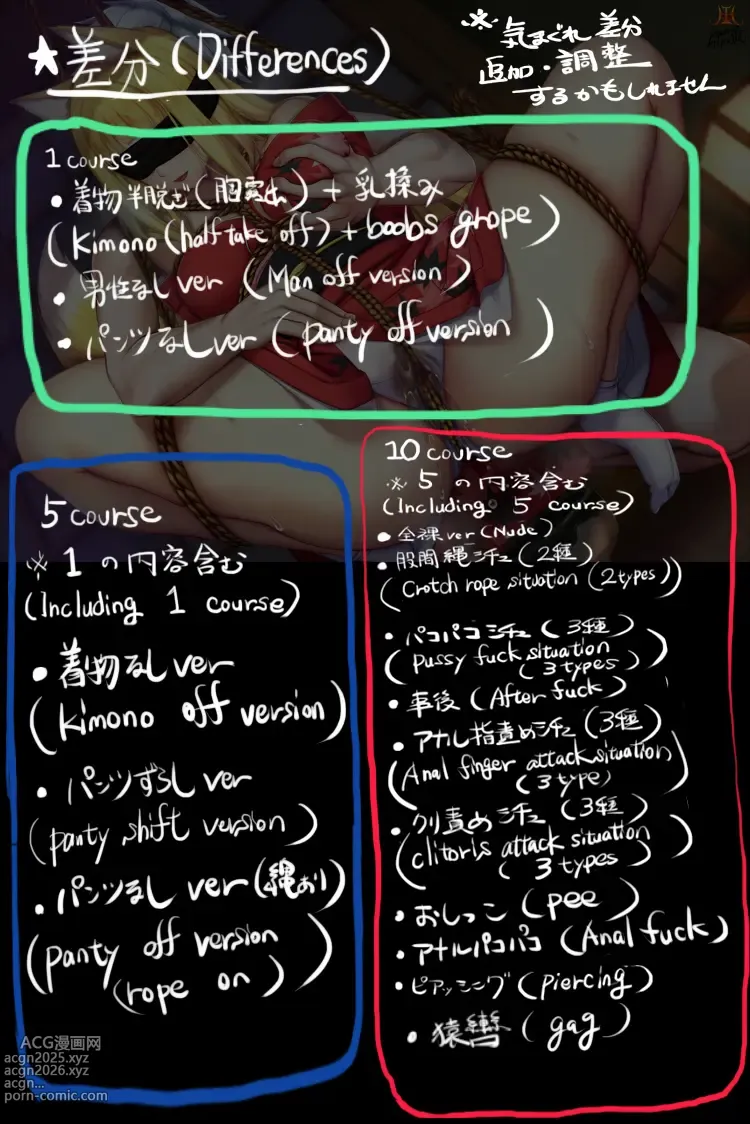 ★差分(Differences)
※気まぐれ差分
追加・調整
するかもしれません
1 course
・着物半脱ぎ(胸露出)+乳揉み
(kimono (half take off) + boobs grope)
・男性なし ver (Man off version)
・パンツなし ver (panty off version)
5 course
※ 1 の内容含む
(Including 1 course)
・着物なし ver
(kimono off version)
・パンツずらし ver
(panty shift version)
・パンツなし ver (縄あり)
(panty off version
(rope on))
10 course
※ 5 の内容含む
(Including 5 course)
・全裸 ver (Nude)
・股間縄シチュ (2種)
(Crotch rope situation (2types))
・パコパコシチュ (3種)
(pussy fuck situation
(3types))
・事後 (After fuck)
・アナル指責めシチュ (3種)
(Anal finger attack situation
(3type))
・クリ責めシチュ (3種)
(clitoris attack situation
(3types))
・おしっこ (pee)
・アナルパコパコ (Anal fuck)
・ピアッシング (piercing)
・猿轡 (gag)
ACG漫画网
acgn2025.xyz
acgn2026.xyz
acgn...
porn-comic.com